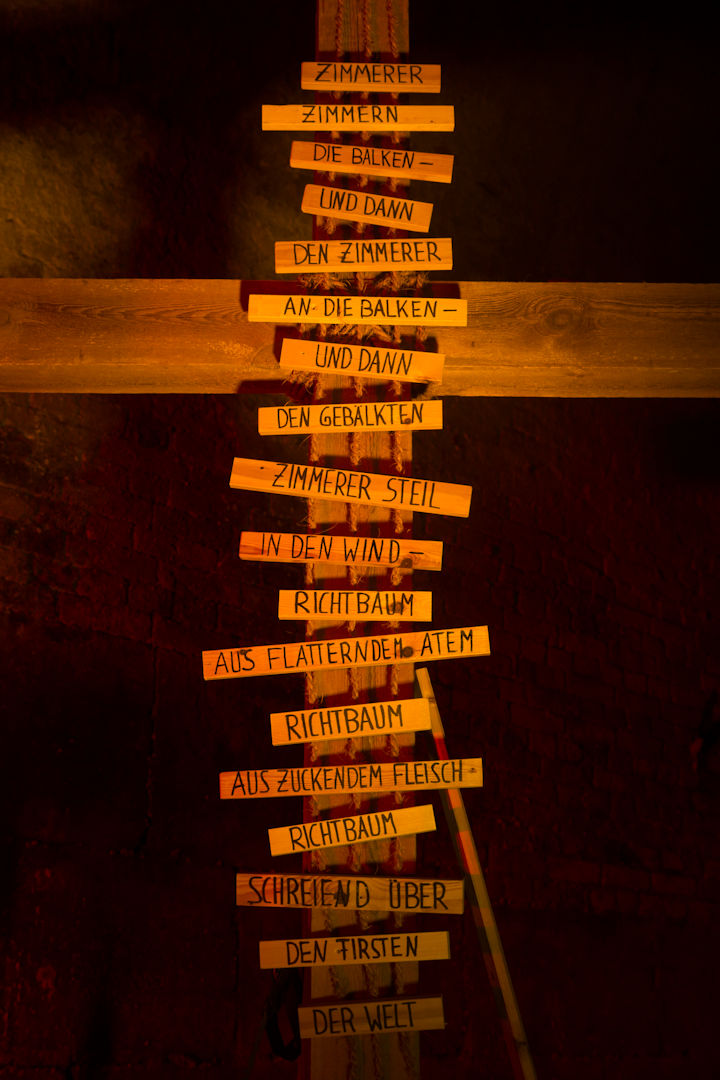 ZIMMERER
ZIMMERN
DIE BALKEN –
UND DANN
DEN ZIMMERER
AN DIE BALKEN –
UND DANN
DEN GEBÄLKTEN
ZIMMERER STEIL
IN DEN WIND –
RICHTBAUM
AUS FLATTERNDEM ATEM
RICHTBAUM
AUS ZUCKENDEM FLEISCH
RICHTBAUM
SCHREIEND ÜBER
DEN FIRSTEN
DER WELT